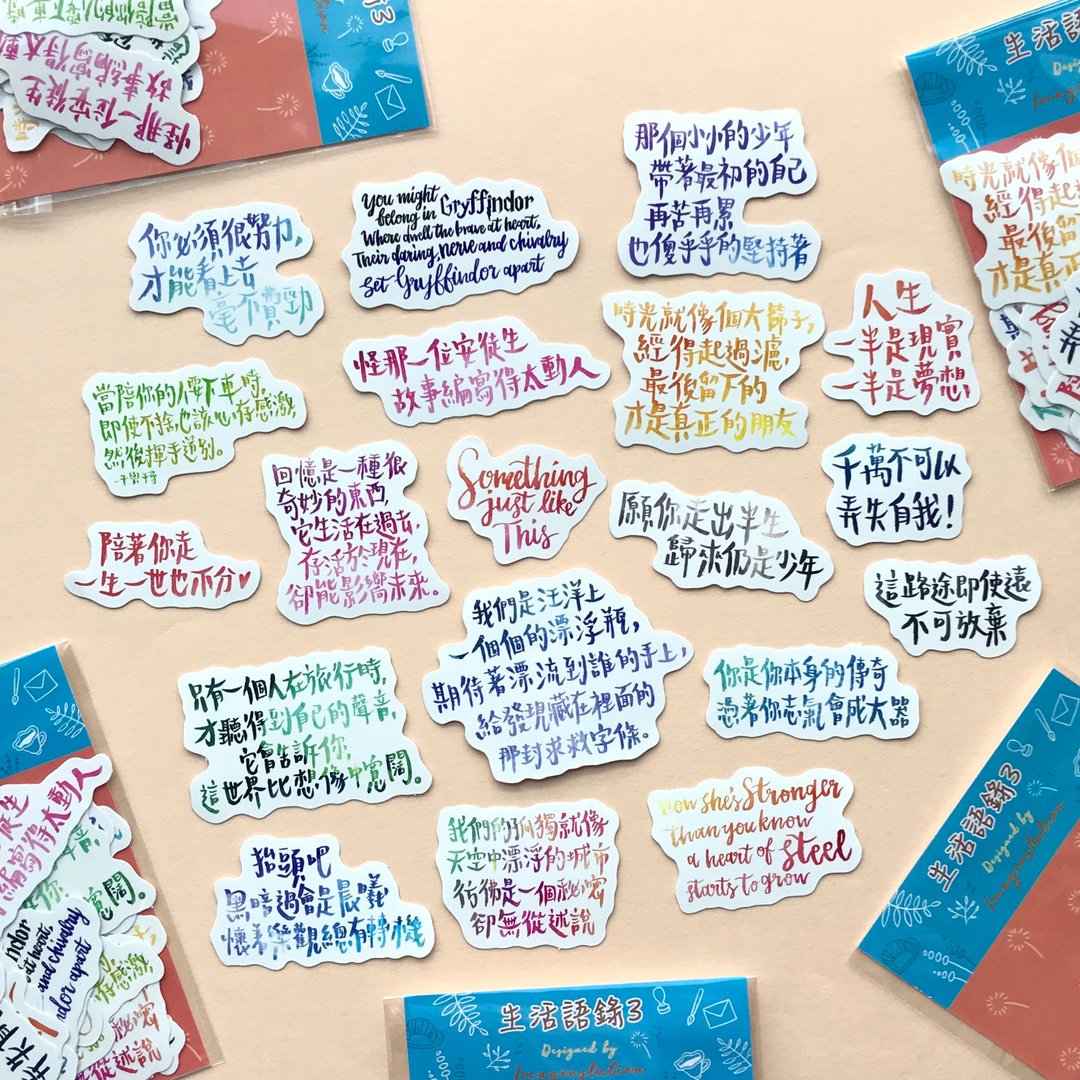 生活語錄3
怪那一位安徒生
故事編寫得太動人
生活語錄3
Designed by
時光就像個
經得起過
最後留
才是真正
那個小小的少年
帶著最初的自己
再苦再累
也傻乎乎的堅持著
You might
belong in Gryffindor
Where dwell the brave at heart,
Their daring, nerve and chivalry
Set Gryffindor apart
你必須很努力,
才能看上去
毫不費勁
時光就像個大篩子,
經得起過濾,
最後留下的
才是真正的朋友
人生
一半是現實
一半是夢想;
怪那一位安徒生
故事編寫得太動人
當陪你的人要下車時,
即使不捨,也該心存感激,
然後揮手道別。
-千與千尋
回憶是一種很
奇妙的東西,
它生活在過去,
存活於現在,
卻能影響未來。
Something
just like
This
千萬不可以
弄失自我!
願你走出半生
歸來仍是少年
陪著你走
一生一世也不分♥
這路途即使遠
不可放棄
我們是汪洋上
一個個的漂浮瓶,
期待著漂流到誰的手上,
給發現藏在裡面的
那封求救字條。
只有一個人在旅行時,
才聽得到自己的聲音,
它會告訴你,
這世界比想像中寬闊。
你是你本身的傳奇
憑著你志氣會成大器
now she's Stronger
than you know
a heart of Steel
starts to grow
我們的孤獨就像
天空中漂浮的城市
彷彿是一個秘密
卻無從述說
抬頭吧
黑暗過會是晨曦
懷著樂觀總有轉機
徒生
編寫得太動人
寬闊。
ndor
at heart,
and chivalry
dor apart
存感激,
秘密
從述說
生活語錄3
Designed by
Imaginstation
生活語錄3
Designed by
Imaginstation